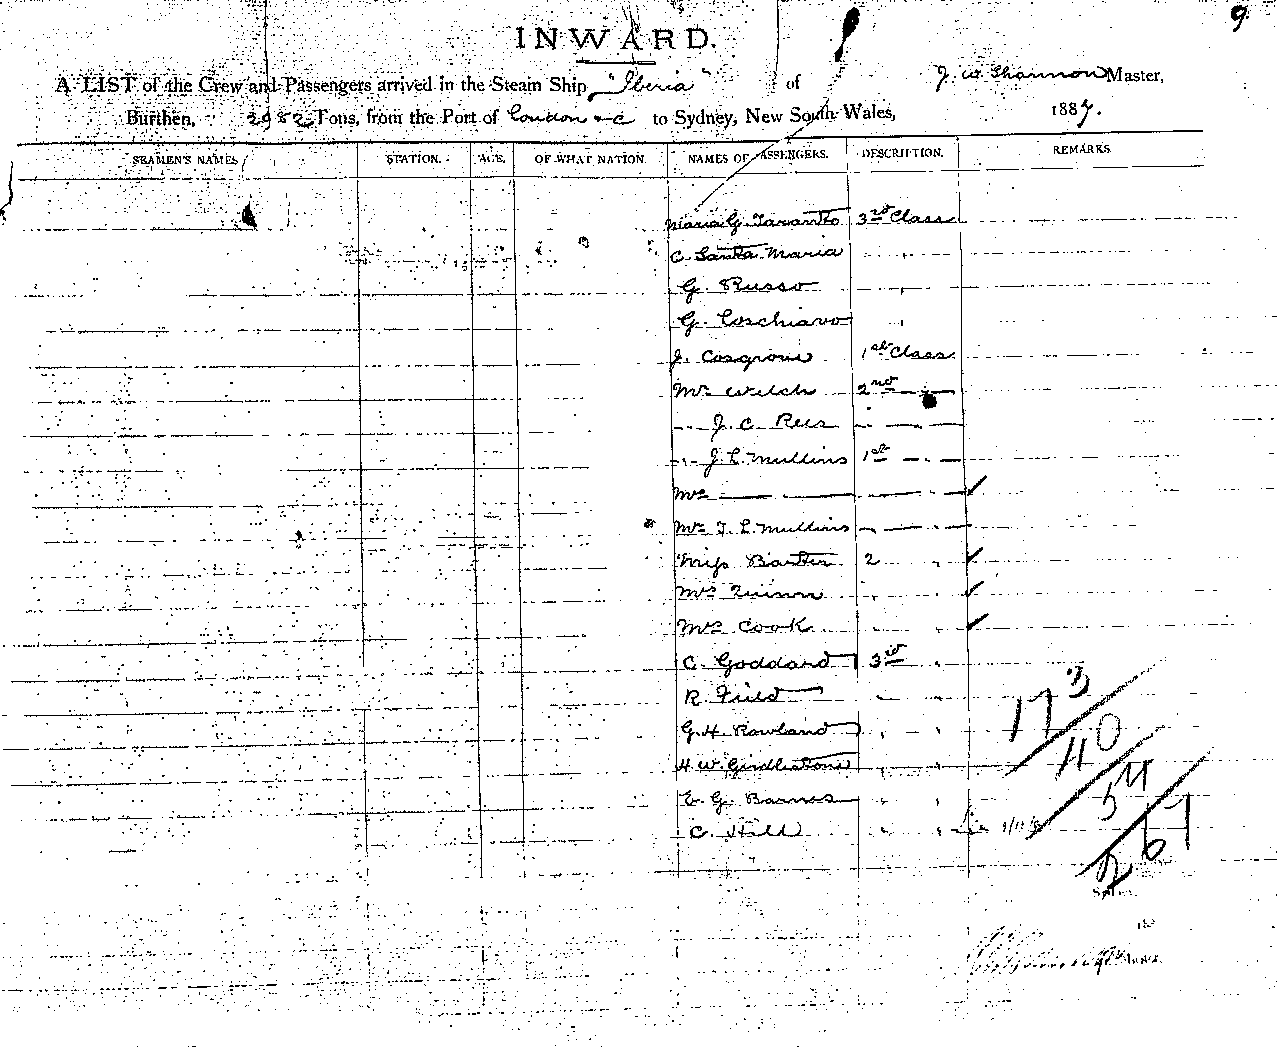 9.
INWARD.
A LIST of the Crew and Passengers arrived in the Steam Ship "Iberia" of J. W. Shannon Master,
Burthen, 2982 Tons, from the Port of London &c to Sydney, New South Wales, 1887.
SEAMEN'S NAMES STATION. AGE. OF WHAT NATION. NAMES OF PASSENGERS. DESCRIPTION. REMARKS
Maria G. Taranto 3rd Class
C. Santa Maria
G. Russo
G. Loschiavo
J. Cosgrove 1st Class
Mr Welch 2nd
J. C. Rees
J. L. Mullins 1st
Mrs ✓
Mr T. L. Mullins
Miss Baxter 2 ✓
Mrs Quinn ✓
Mrs Cook ✓
C. Goddard 3rd
R. Field
G. H. Rowland
H. W. Girdlestone
E. G. Barnes
C. Hill
173
40
54
267
188
Master